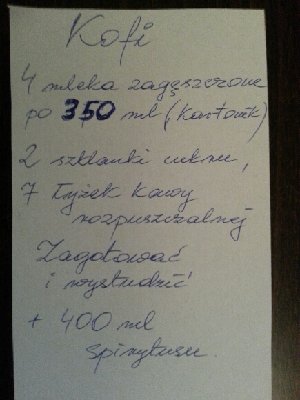 Kofi
4 mleka zagęszczone
po 350 ml (kartonik)
2 szklanki cukru,
7 łyżek kawy
rozpuszczalnej
Zagotować
i wystudzić
+ 400 ml
spirytusu.